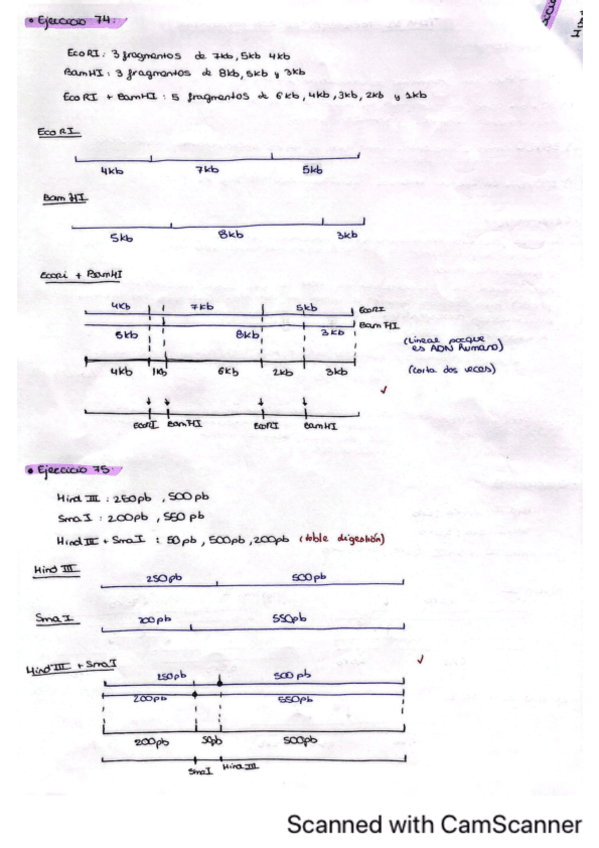 • Ejercicio 74:
EcoRI: 3 fragmentos de 7kb, 5kb 4kb
BamHI: 3 fragmentos de 8kb, 5kb y 3kb
EcoRI + BamHI: 5 fragmentos de 6kb, 4kb, 3kb, 2kb y 1kb
EcoRI
4kb 7kb 5kb
BamHI
5kb 8kb 3kb
EcoRI + BamHI
4kb 7kb 5kb EcoRI
5kb 8kb 3kb BamHI
(Lineal porque es ADN humano)
4kb 1kb 6kb 2kb 3kb
(corta dos veces)
EcoRI BamHI EcoRI BamHI
• Ejercicio 75:
Hind III: 250pb, 500pb
SmaI: 200pb, 550pb
Hind III + SmaI: 50pb, 500pb, 200pb (doble digestión)
Hind III
250pb 500pb
SmaI
200pb 550pb
Hind III + SmaI
250pb 500pb
200pb 550pb
200pb 50pb 500pb
SmaI Hind III
Scanned with CamScanner